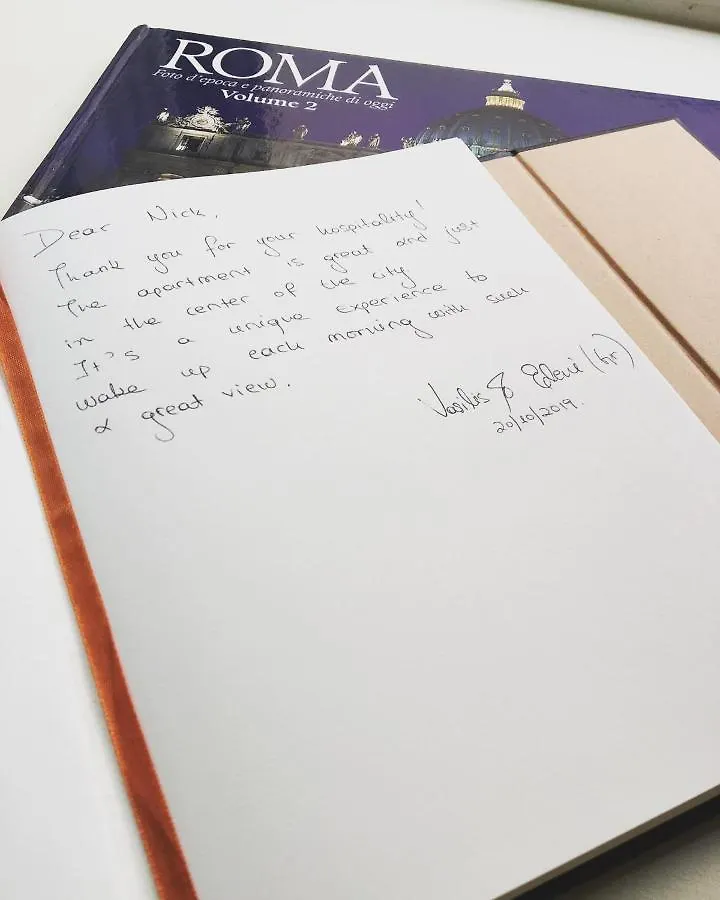 ROMA
Foto d'epoca e panoramiche di oggi
Volume 2
Dear Nick,
Thank you for your hospitality!
The apartment is great and just
in the center of the city.
It's a unique experience to
wake up each morning with such
a great view.
Vasilis & Eleni (Gr)
20/10/2019.